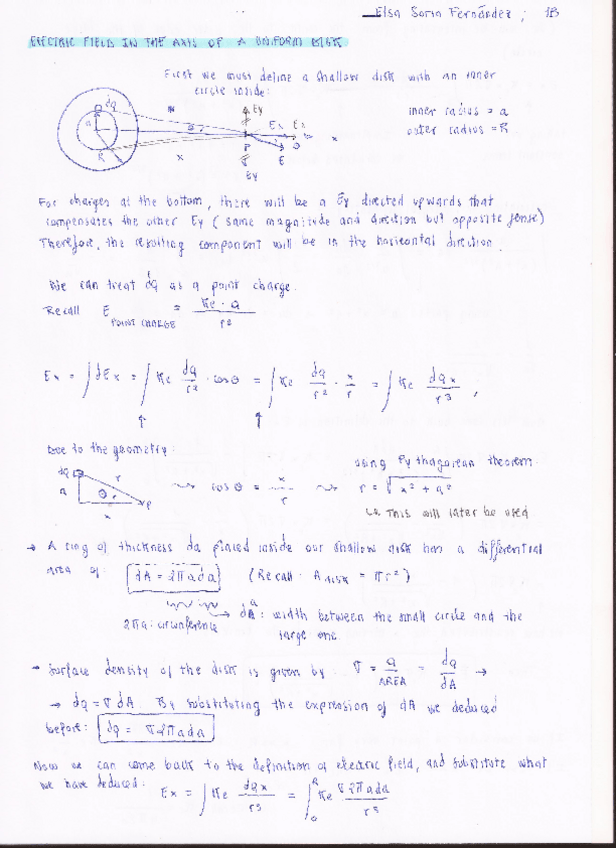 Elsa Soria Fernández, 1B
ELECTRIC FIELD IN THE AXIS OF A UNIFORM DISK
First we must define a shallow disk with an inner
circle inside:
inner radius = a
outer radius = R
dq
a
R
θ
x
Ey
Ex
P
E
Ey
x
For charges at the bottom, there will be a Ey directed upwards that
compensates the other Ey (same magnitude and direction but opposite sense)
Therefore, the resulting component will be in the horizontal direction.
We can treat dq as a point charge.
Recall E POINT CHARGE = Ke · q / r²
Ex = ∫dEx = ∫Ke dq/r² · cosθ = ∫Ke dq/r² · x/r = ∫Ke dq x/r³,
Due to the geometry:
using Pythagorean theorem.
dq
a
r
θ
x
P
cosθ = x/r
r = √x² + a²
↳ This will later be used
→ A ring of thickness da placed inside our shallow disk has a differential
area of: dA = 2πada (Recall: A DISK = πr²)
2πa: circumference
da: width between the small circle and the
large one.
→ Surface density of the disk is given by: σ = Q/AREA = dq/dA →
→ dq = σ dA. By substituting the expression of dA we deduced
before: dq = σ2πada
Now we can come back to the definition of electric field, and substitute what
we have deduced: Ex = ∫Ke dq x/r³ = ∫₀ᴿ Ke σ2πada/r³